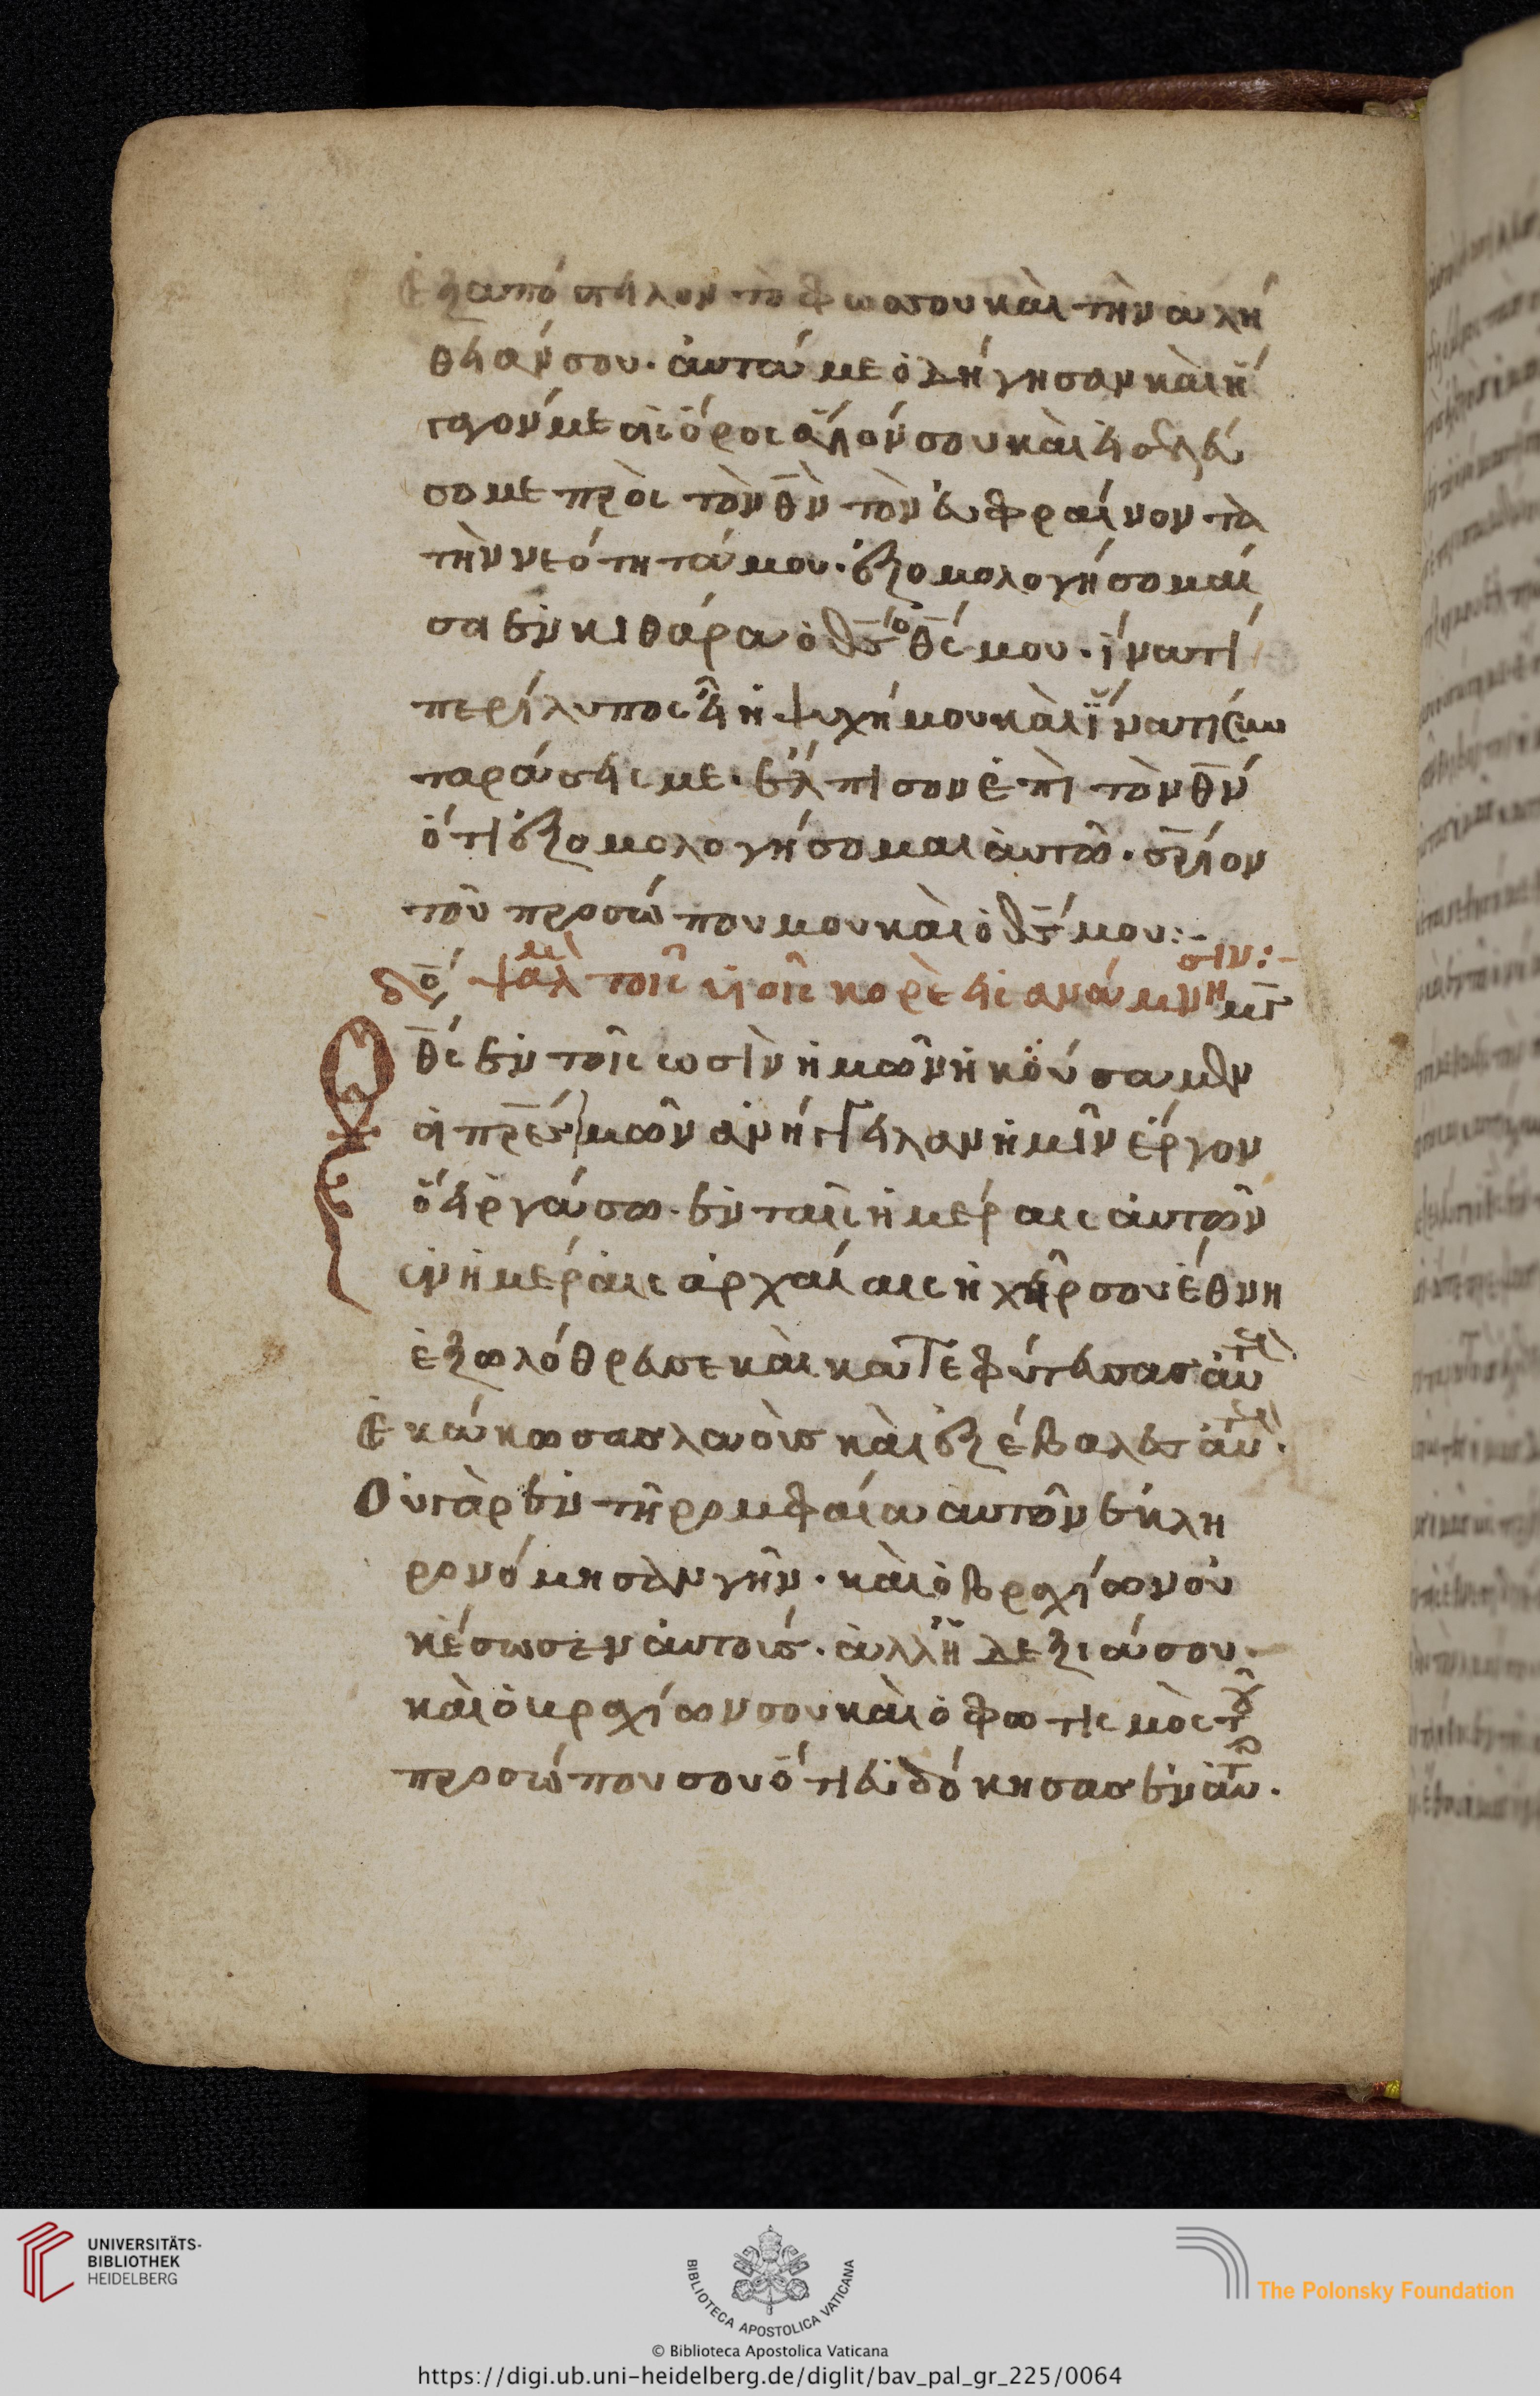 Ἐξαπόστειλον τὸ φῶς σου καὶ τὴν ἀλή
θειάν σου. ἀυτά με ὁδήγησαν καὶ ἤ
γαγόν με εἰς ὄρος ἅγιόν σου καὶ
σομε πρὸς τὸν θ̅ν̅ τὸν ἐυφραίνοντα
τὴν νεότητά μου. ἐξομολογήσομαί
σοι ἐν κιθάρα ὁ θ̅ς̅ ὁ θ̅ς̅ μου. ἱνατί
περίλυπος εἶ ἡ ψυχή μου καὶ ἱνατί συν
ταράσεις με. ἔλπισον ἐπὶ τὸν θ̅ν̅
ὅτι ἐξομολογήσομαι ἀυτῶ. σ̅ρ̅ιον
τοῦ προσώπου μου καὶ ὁ θ̅ς̅ μου:-
ψαλμ τοῖς υἱοῖς κορὲ εἰς ἀνάμνησιν:- μ̅γ̅
Ὁ θ̅ς̅ ἐν τοῖς ωσὶν ἡμῶν ἠκούσαμεν
οἱ π̅ρ̅ες ἡμῶν ἀνήγγειλαν ἡμῖν ἔργον
ὃ εἰργάσω. ἐν ταῖς ἡμέραις ἀυτῶν
ἐν ἡμέραις ἀρχαίαις ἡ χείρ σου ἔθνη
ἐξωλόθρευσε καὶ κατεφύτευσας ἀυτούς.
Ἐκάκωσας λαοὺς καὶ ἐξέβαλες ἀυτούς.
Οὐ γὰρ ἐν τῆ ρομφαία ἀυτῶν ἐκλη
ρονόμησαν γῆν. καὶ ὁ βραχίων οὐ
κ ἔσωσεν ἀυτούς. ἀλλ ἡ δεξιά σου.
καὶ ὁ βραχίων σου καὶ ὁ φωτισμὸς τοῦ
προσώπου σου ὅτι ἐυδόκησας ἐν ἀυτοῖς.
UNIVERSITÄTS-
BIBLIOTHEK
HEIDELBERG
BIBLIOTECA APOSTOLICA VATICANA
The Polonsky Foundation
© Biblioteca Apostolica Vaticana
https://digi.ub.uni-heidelberg.de/diglit/bav_pal_gr_225/0064